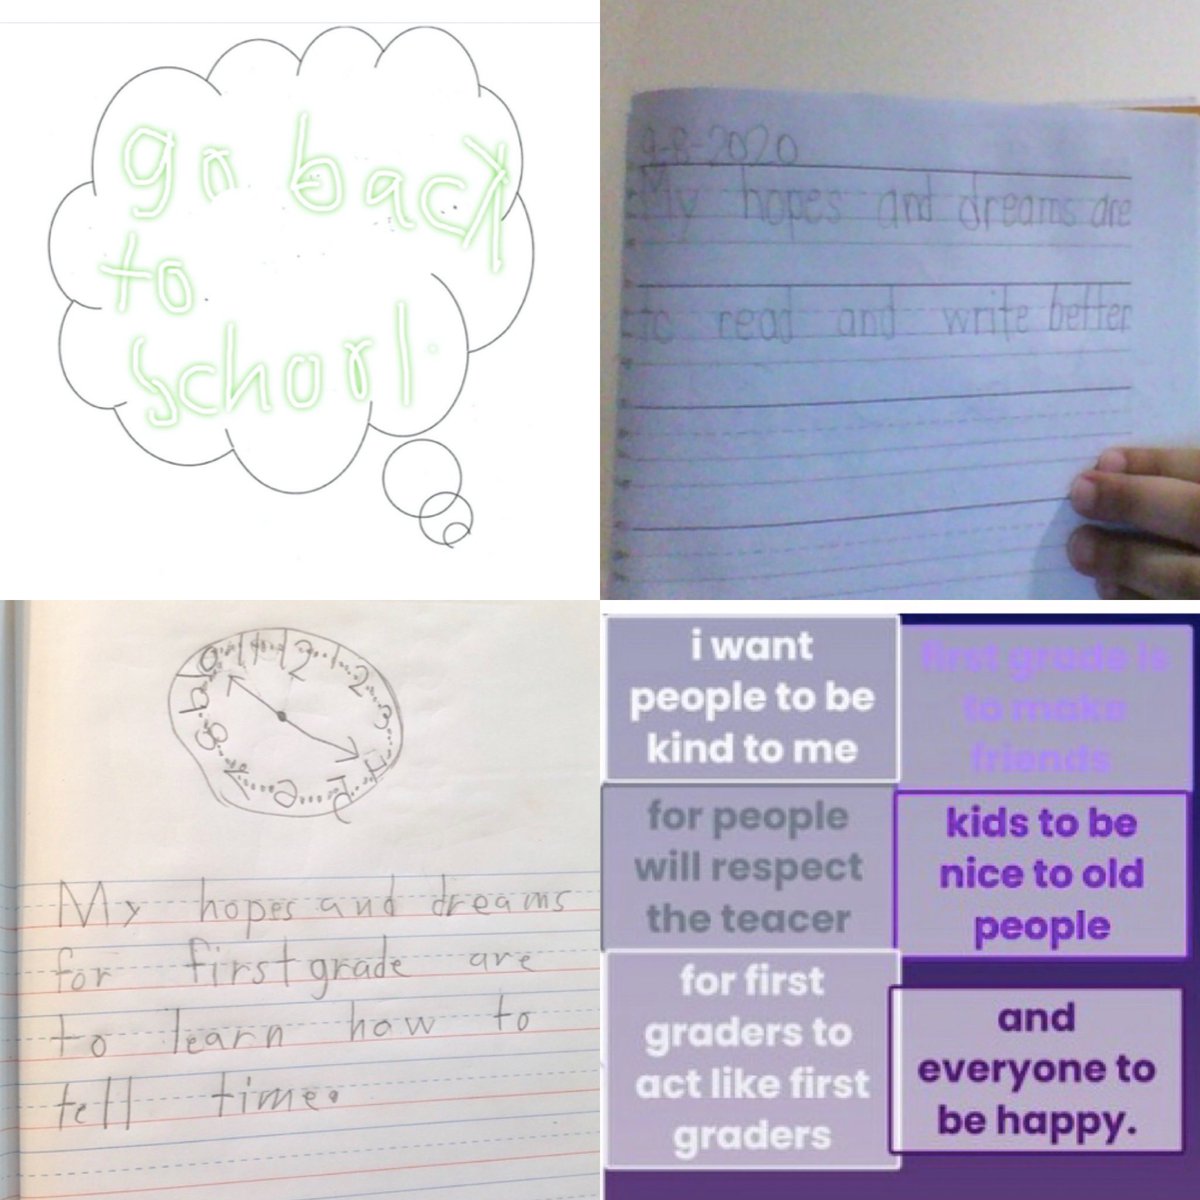 go back
to
school.
9-8-2020
My hopes and dreams are
to read and write better
10 11 12 1 2 3 4 5 6 7 8 9
My hopes and dreams
for first grade are
to learn how to
tell time.
i want
people to be
kind to me
for people
will respect
the teacer
for first
graders to
act like first
graders
first grade is
to make
friends
kids to be
nice to old
people
and
everyone to
be happy.